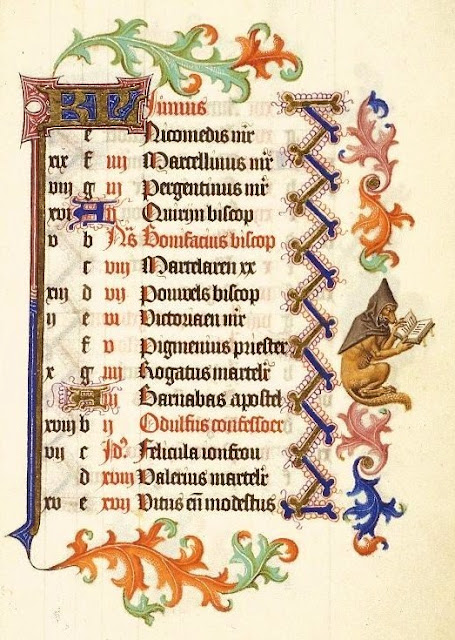 KL Junius
e Nicomedis mr
xix f iiij Marcellinus mr
viij g iij Pergentinus mr
xvi A ij Quirijn biscop
v b Ns Bonifacius biscop
c viij Martelaren xx
xiij d vij Pouwels biscop
ij e vi Victoriaen mr
f v Pigmenius priester
x g iiij Rogatus martelr
A iij Barnabas apostel
xviij b ij Odulfus confessoer
vij c Id' Felicula ionfrou
d xviij Valerius martelr
xv e xvij Vitus eñ modestus